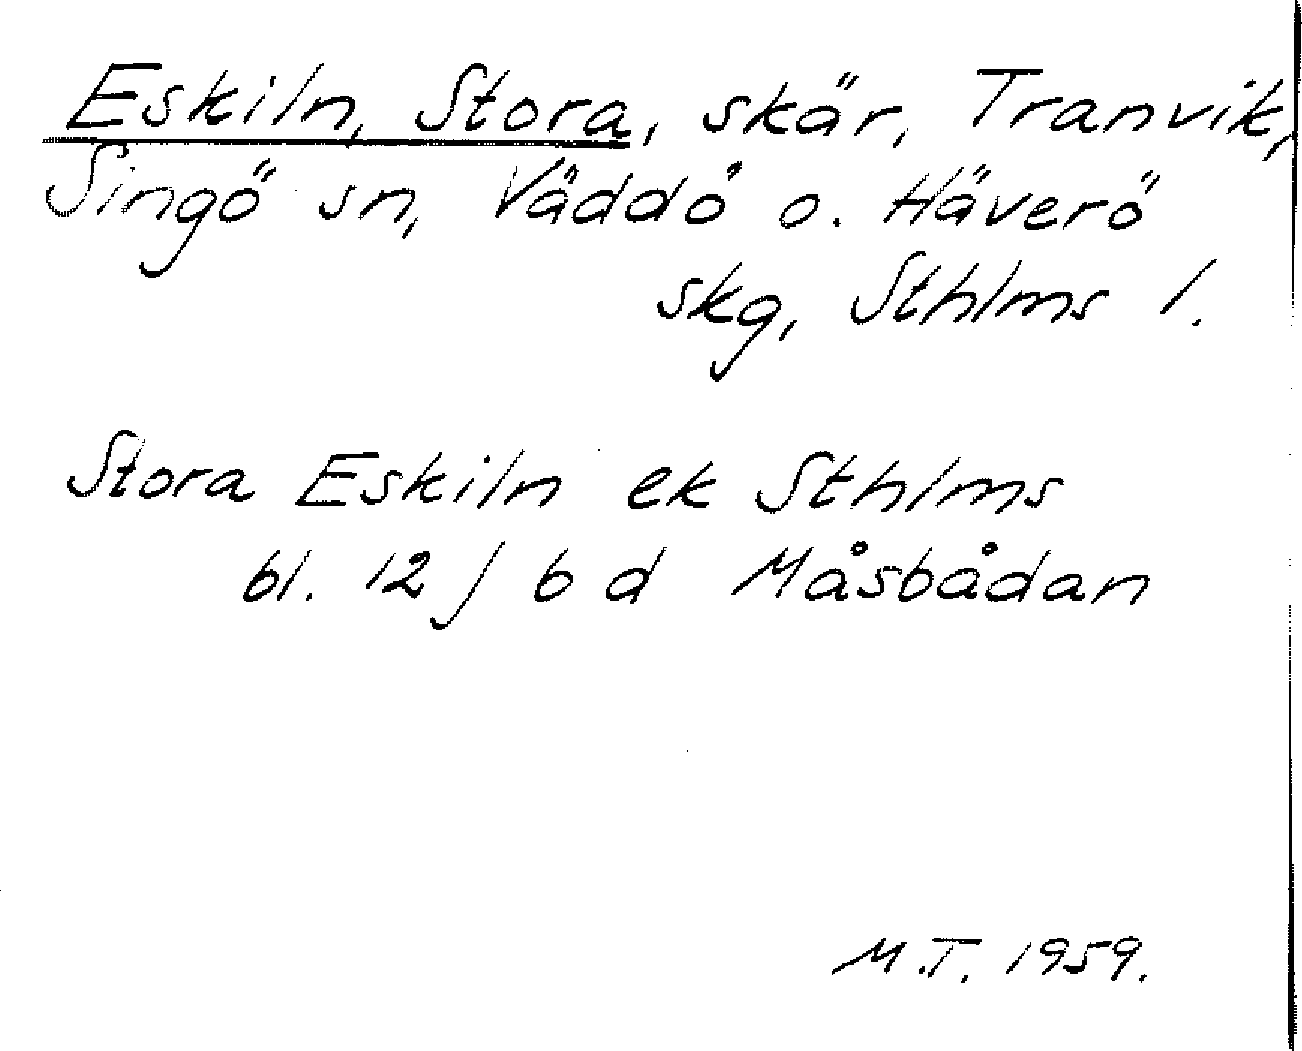 Eskiln, Stora, skär, Tranvik,
Singö sn, Väddö o. Häverö
skg, Sthlms l.
Stora Eskiln ek Sthlms
bl. 12 J 6 d Måsbådan
M.T. 1959.